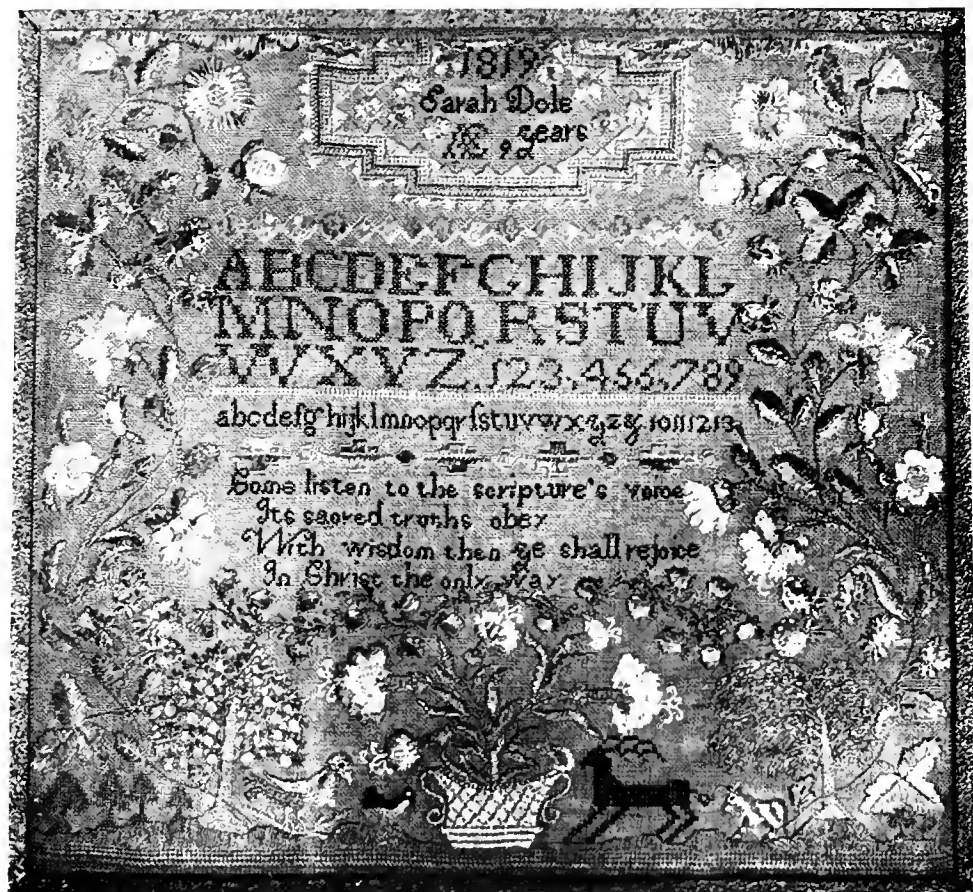 1819
Sarah Dole
Æ 9 years
ABCDEFGHIJKL
MNOPQRSTUV
WXYZ.123.456.789
abcdefghijklmnopqrſstuvwxyz& 10111213
Come listen to the scripture's voice
Its sacred truths obey
With wisdom then ye shall rejoice
In Christ the only way